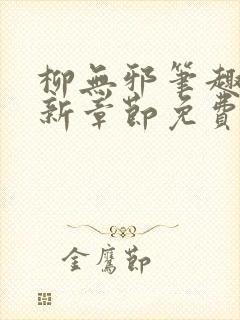 柳無邪筆趣
新章節免費
金鷹節